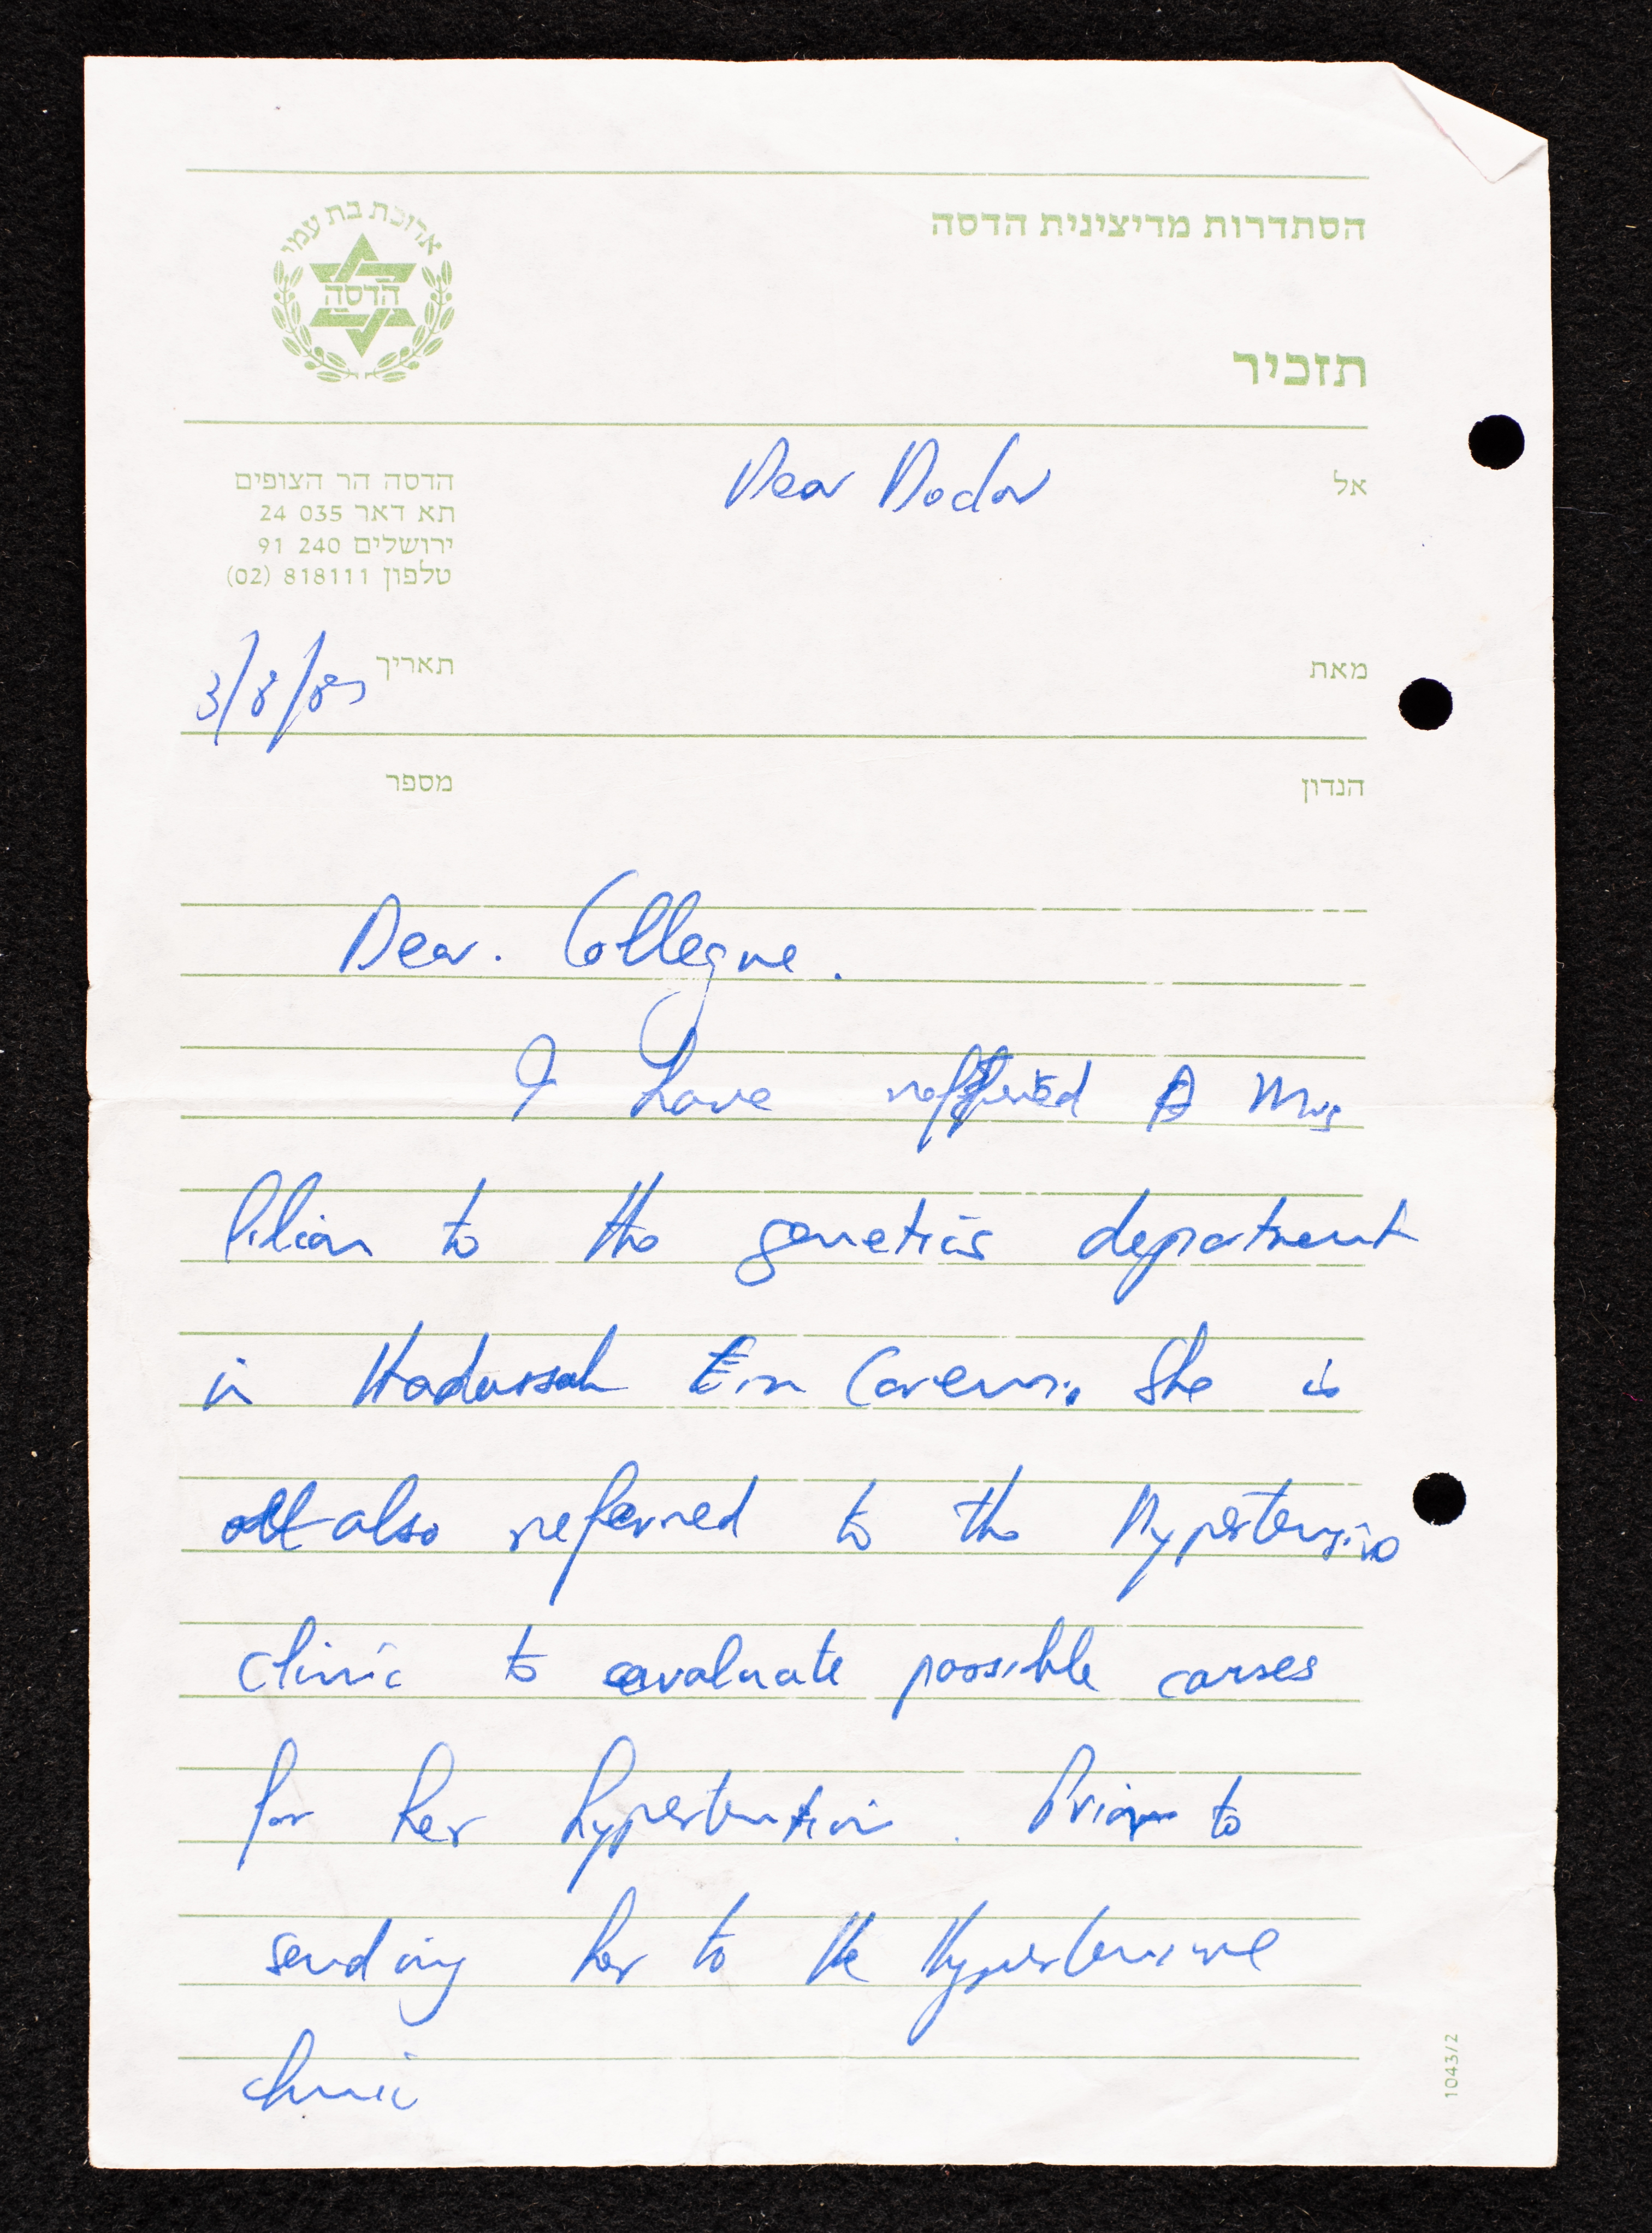 הסתדרות מדיצינית הדסה
ארוכת בת עמי
הדסה
תזכיר
אל
Dear Doctor
הדסה הר הצופים
תא דאר 035 24
ירושלים 240 91
טלפון 818111 (02)
מאת
תאריך 3/8/85
הנדון
מספר
Dear. Collegue.
I have reffered Mrs
to the genetics department
in Hadassah Ein Carem. She is
also referred to the Hypertensive
clinic to evaluate possible causes
for her hypertention. Prior to
sending her to the Hypertensive
clinic
1043/2